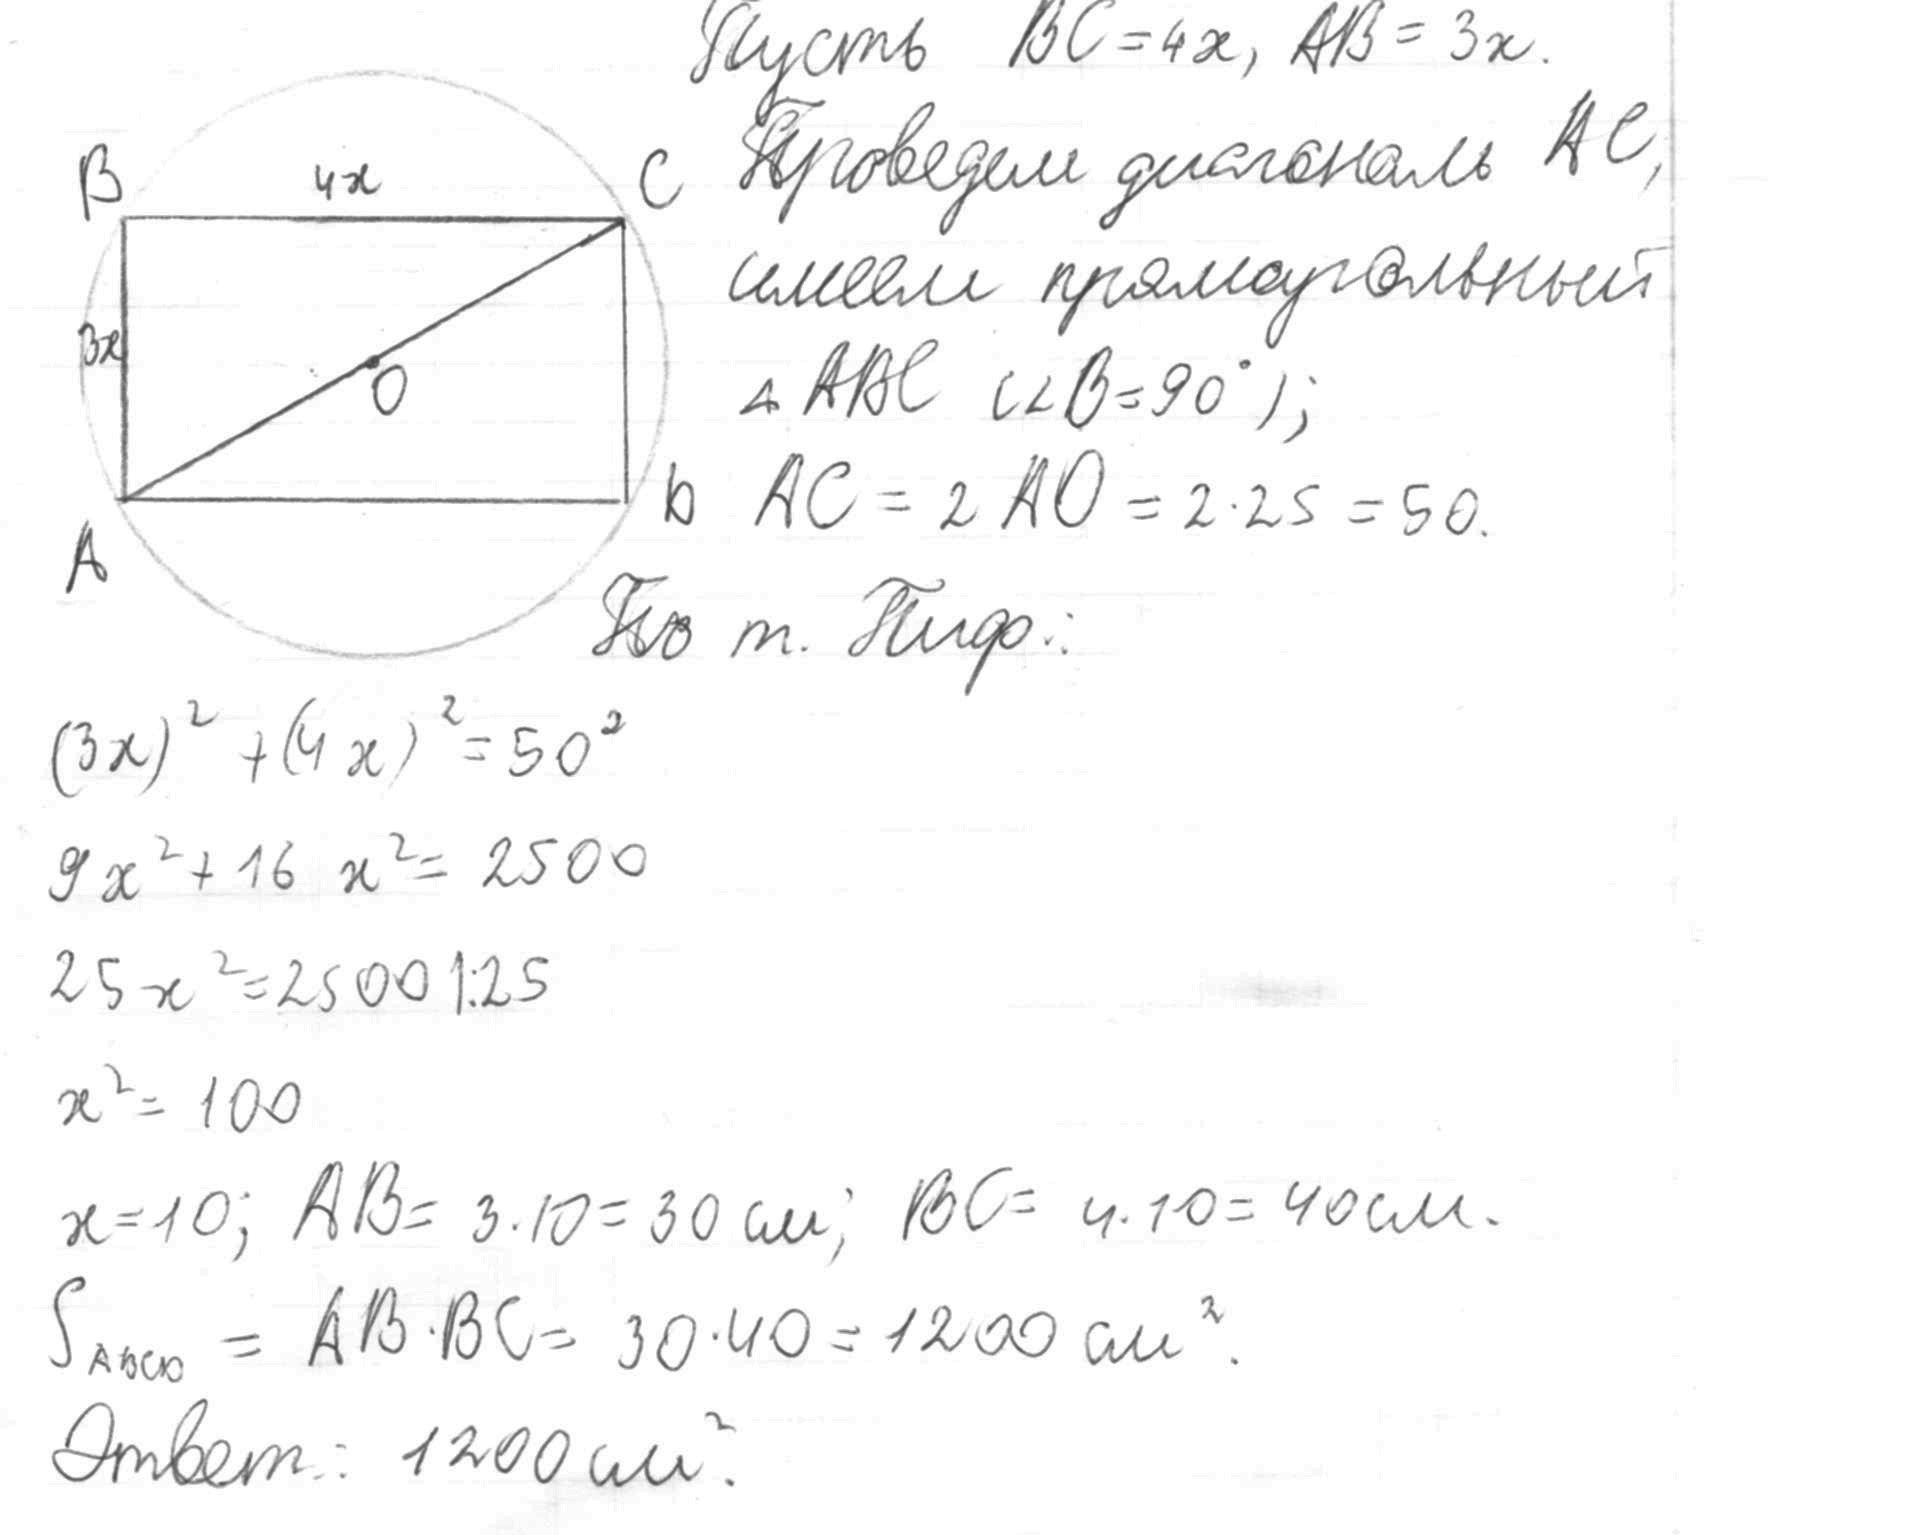 Пусть BC=4x, AB=3x.
B 4x C Проведем диагональ AC,
имеем прямоугольный
3x
O
△ABC (∠B=90°);
D AC = 2 AO = 2·25 = 50.
A
По т. Пиф.:
(3x)² + (4x)² = 50²
9x² + 16x² = 2500
25x² = 2500 |:25
x² = 100
x=10; AB= 3·10= 30 см; BC= 4·10= 40 см.
S ABCD = AB·BC= 30·40 = 1200 см².
Ответ: 1200 см².